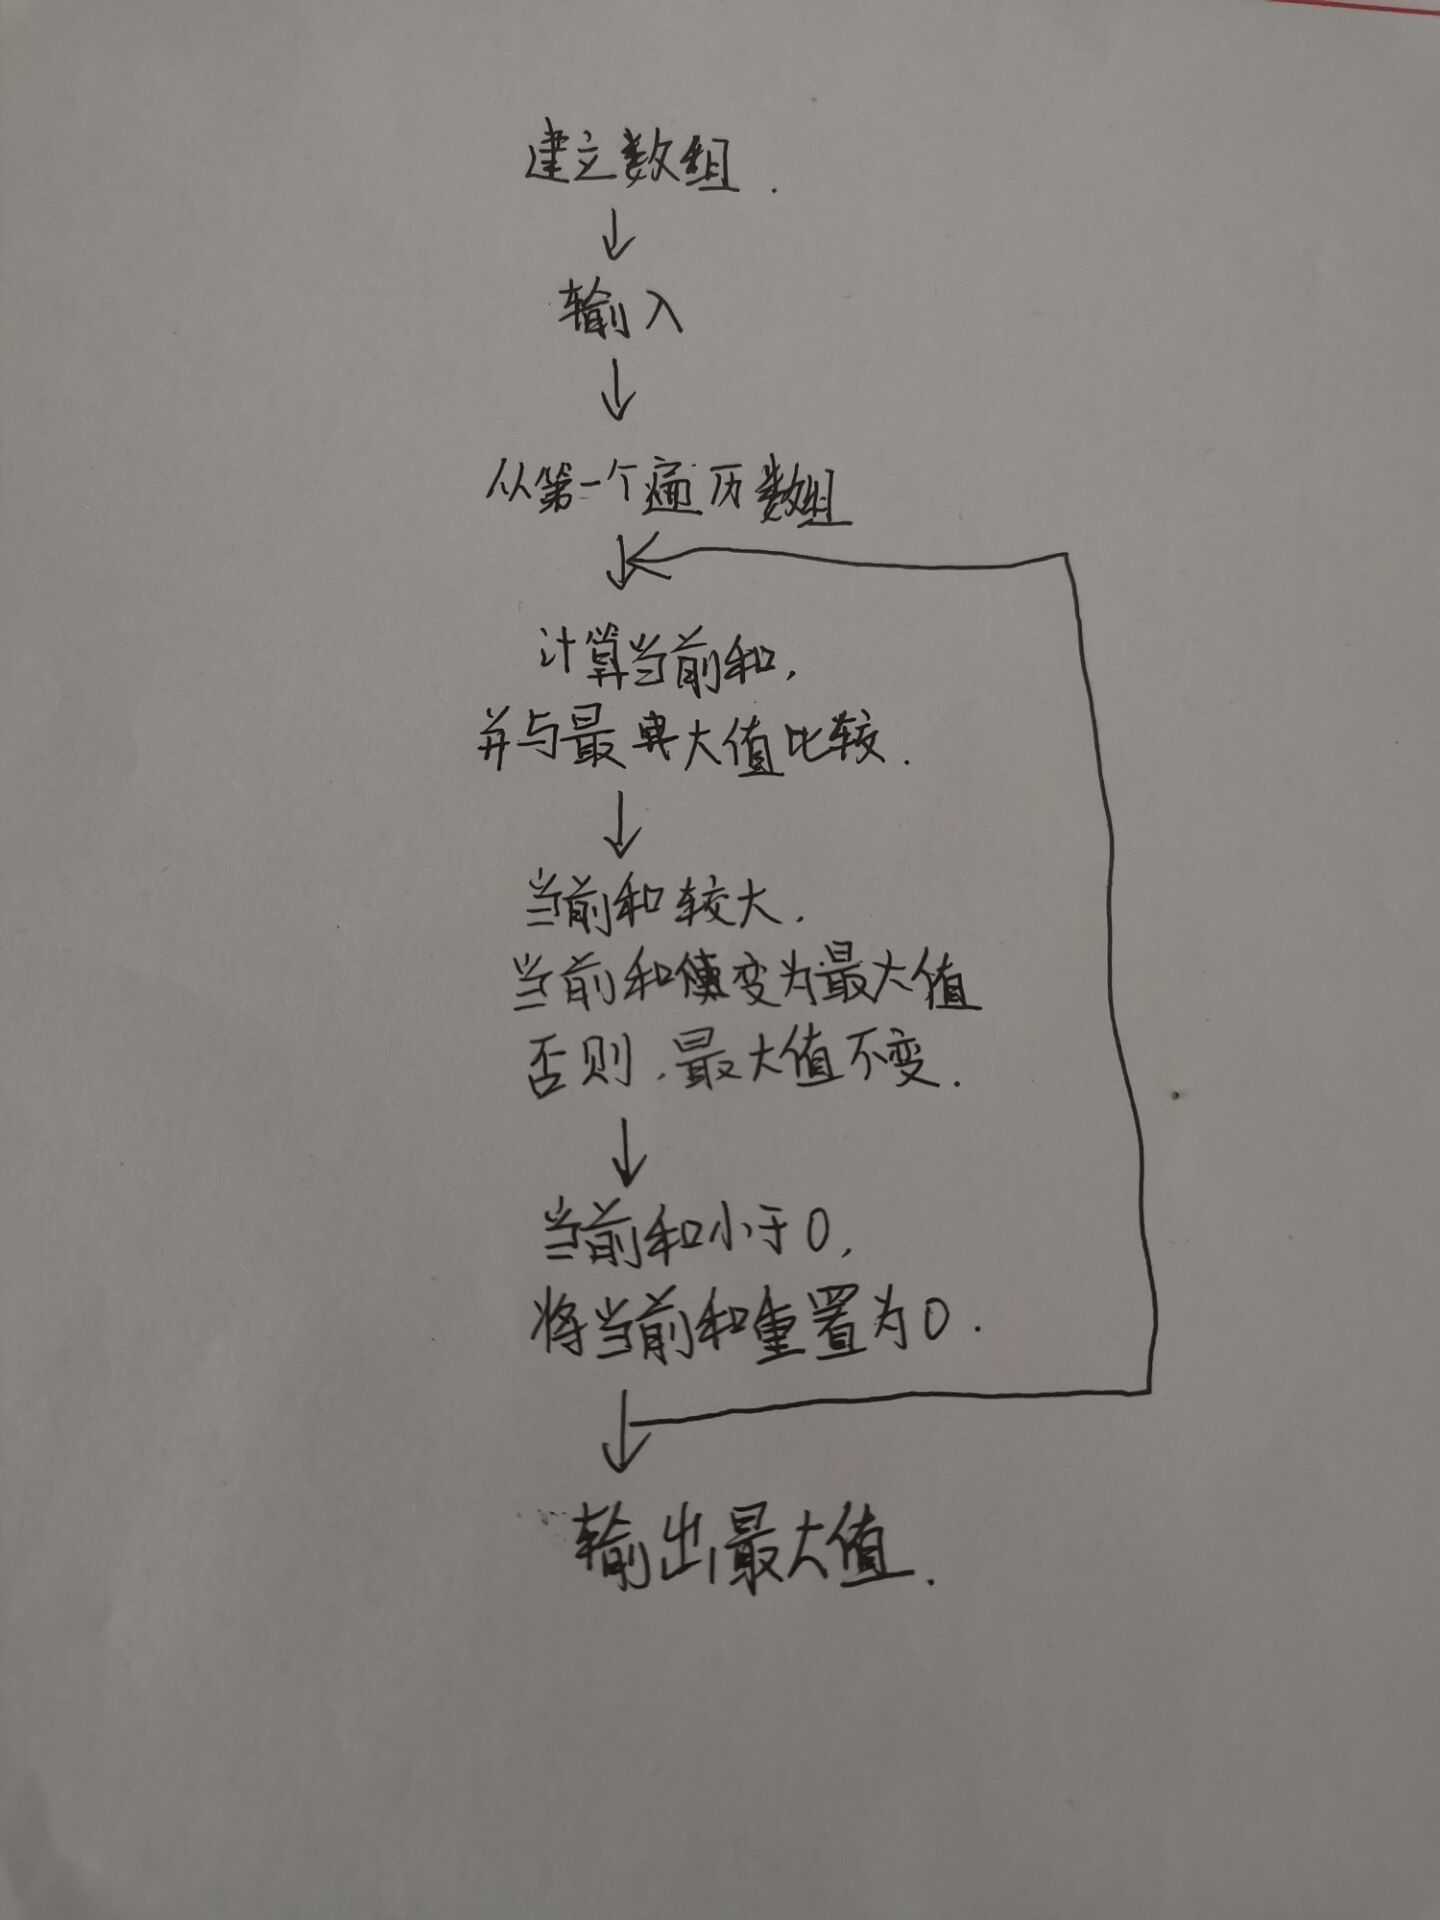 建立数组.
输入
从第一个遍历数组
计算当前和,
并与最大值比较.
当前和较大.
当前和变为最大值
否则,最大值不变.
当前和小于0,
将当前和重置为0.
输出最大值.